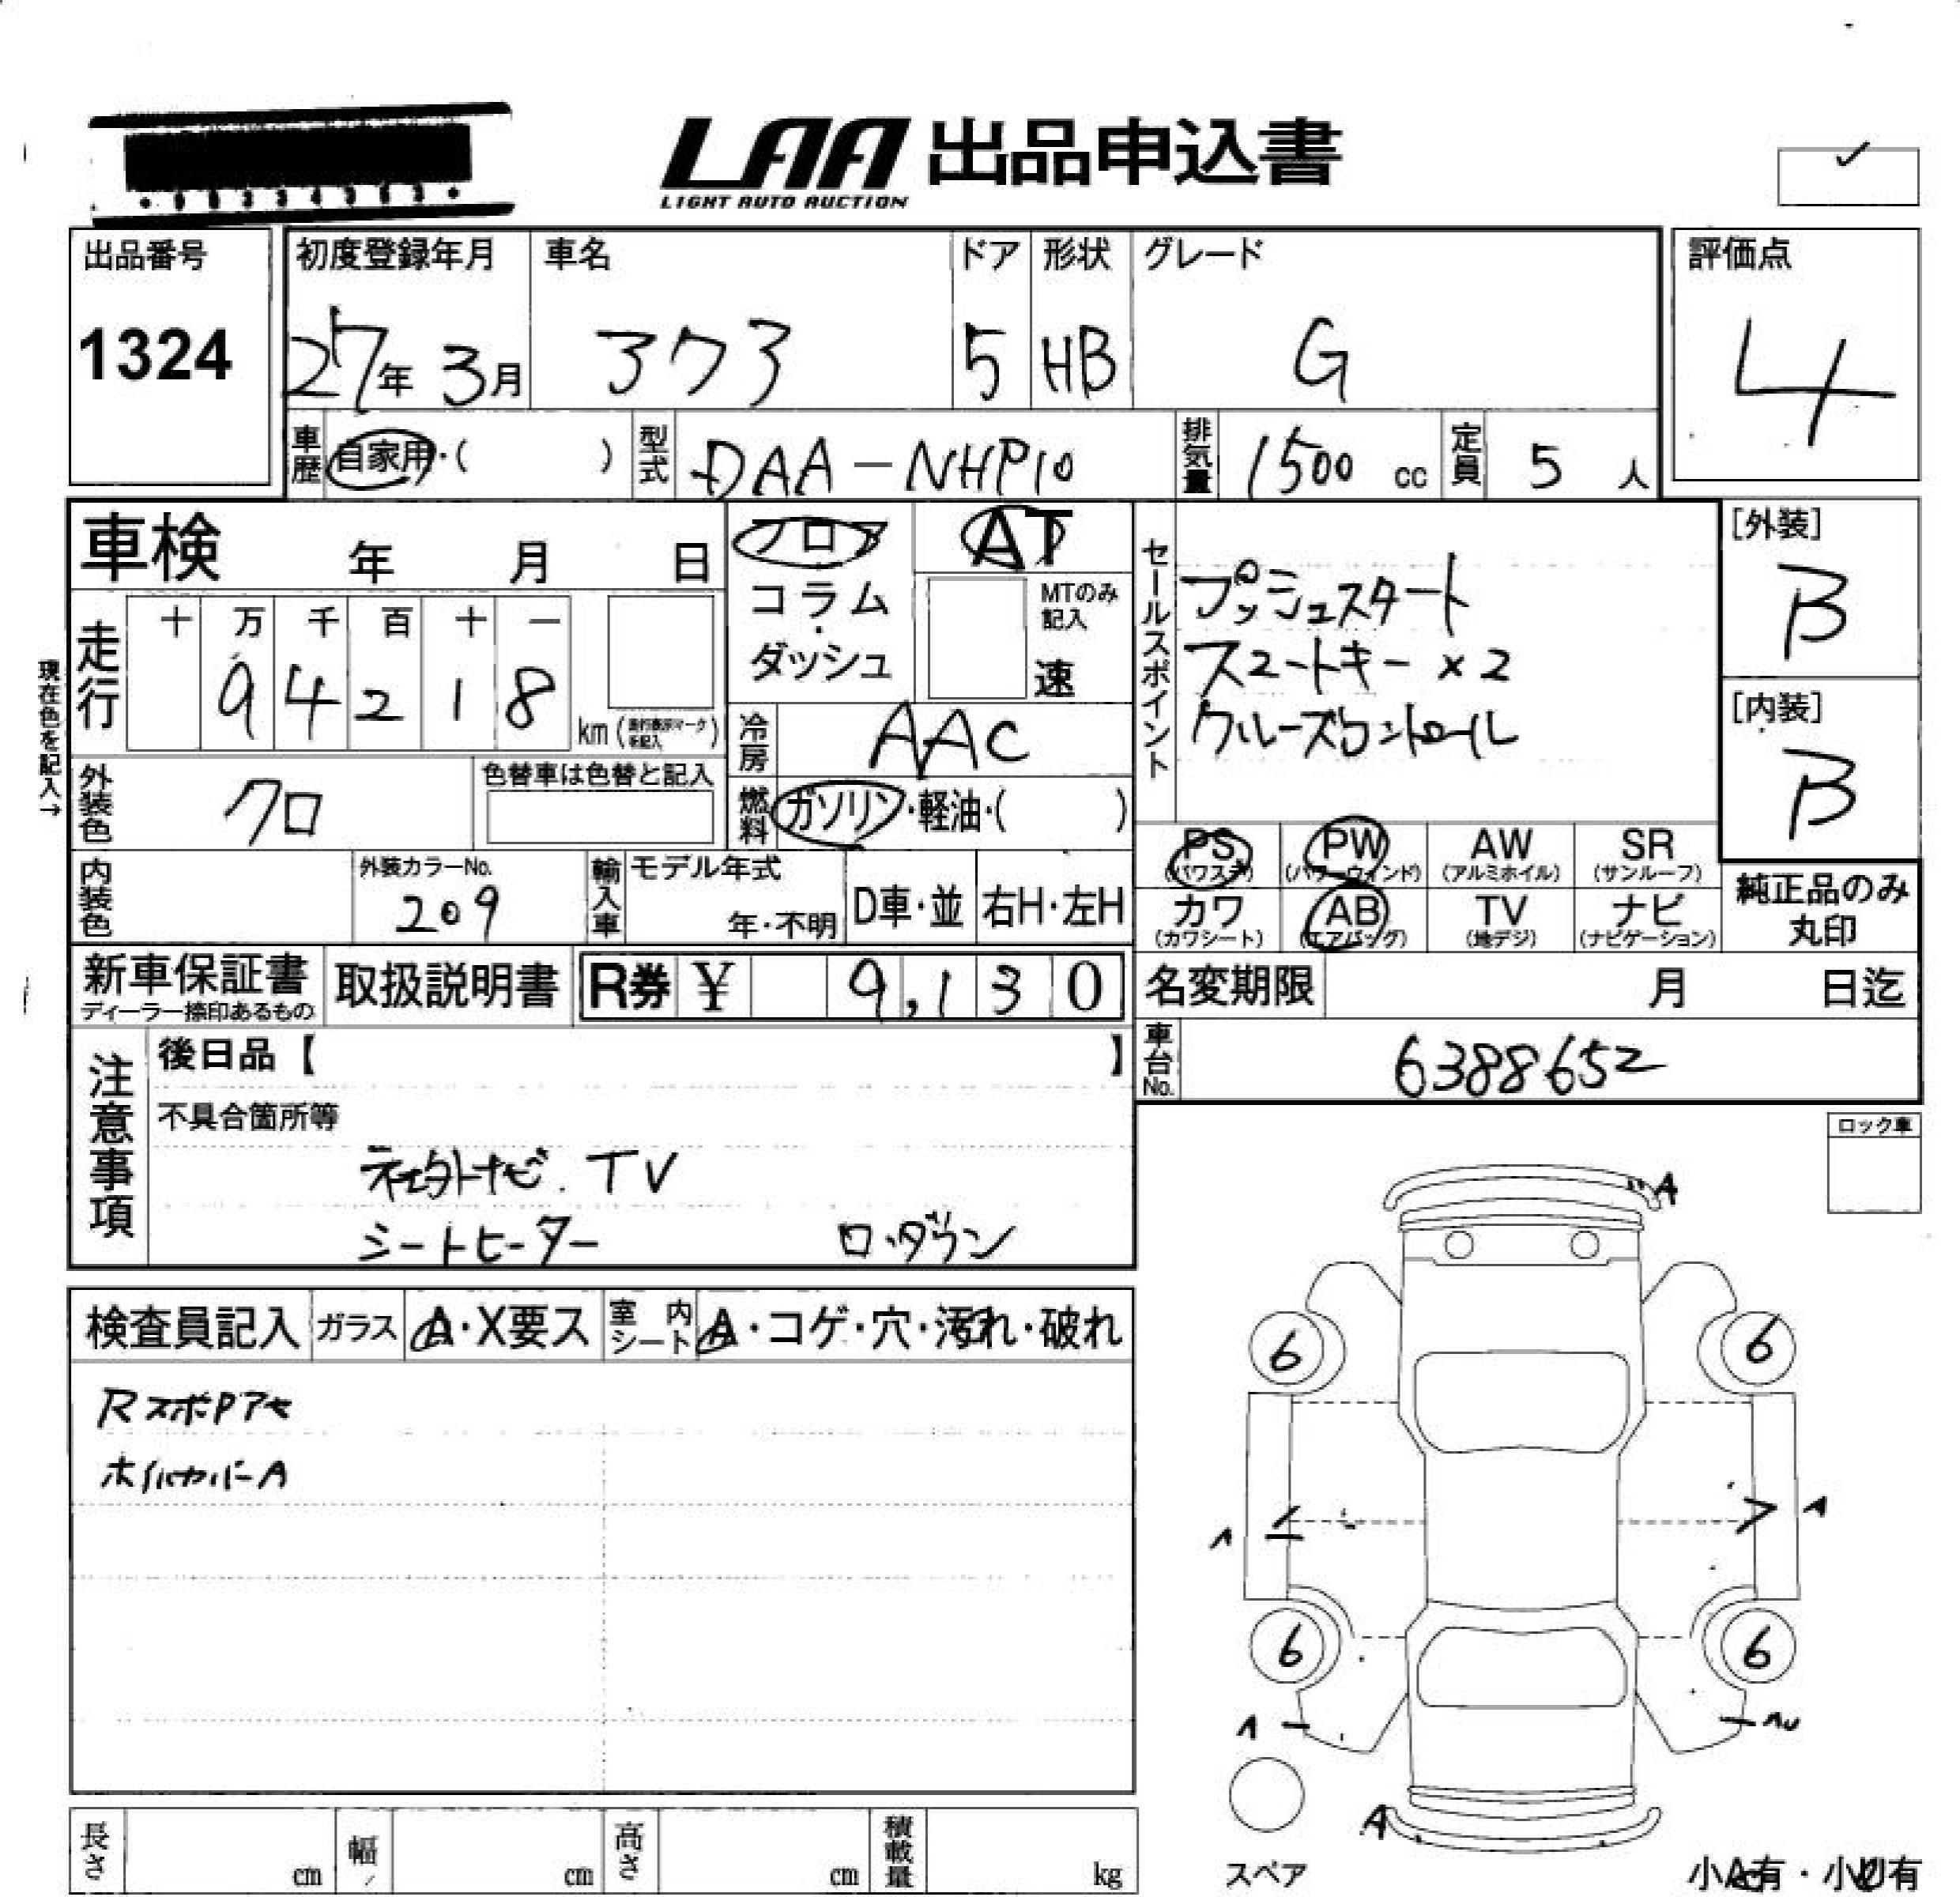 LAA 出品申込書
LIGHT AUTO AUCTION
出品番号
1324
初度登録年月
27年 3月
車名
アクア
ドア
5
形状
HB
グレード
G
評価点
4
車歴
自家用・( )
型式
DAA-NHP10
排気量
1500 cc
定員
5 人
車検 年 月 日
フロア
コラム・ダッシュ
AT
MTのみ記入
速
セールスポイント
プッシュスタート
スマートキー×2
クルーズコントロール
[外装]
B
[内装]
B
現在色を記入→
走行
十 万 千 百 十 一
9 4 2 1 8
km
冷房
AAC
外装色
クロ
色替車は色替と記入
燃料
ガソリン・軽油・( )
PS PW AW SR
(パワステ) (パワーウィンド) (アルミホイル) (サンルーフ)
カワ AB TV ナビ
(カワシート) (エアバッグ) (地デジ) (ナビゲーション)
純正品のみ
丸印
内装色
外装カラーNo.
209
輸入車
モデル年式
年・不明
D車・並
右H・左H
新車保証書
ディーラー捺印あるもの
取扱説明書
R券 ¥ 9,130
名変期限 月 日迄
車台No.
6388652
注意事項
後日品【 】
不具合箇所等
社外ナビ.TV
シートヒーター ロ.ダウン
ロック車
検査員記入
ガラス
A・X要ス
室内シート
A・コゲ・穴・汚れ・破れ
RスポPアセ
ホイルカバーA
A
6 6
A A
6 6
A
A
スペア
長さ cm
幅 cm
高さ cm
積載量 kg
小A有・小U有